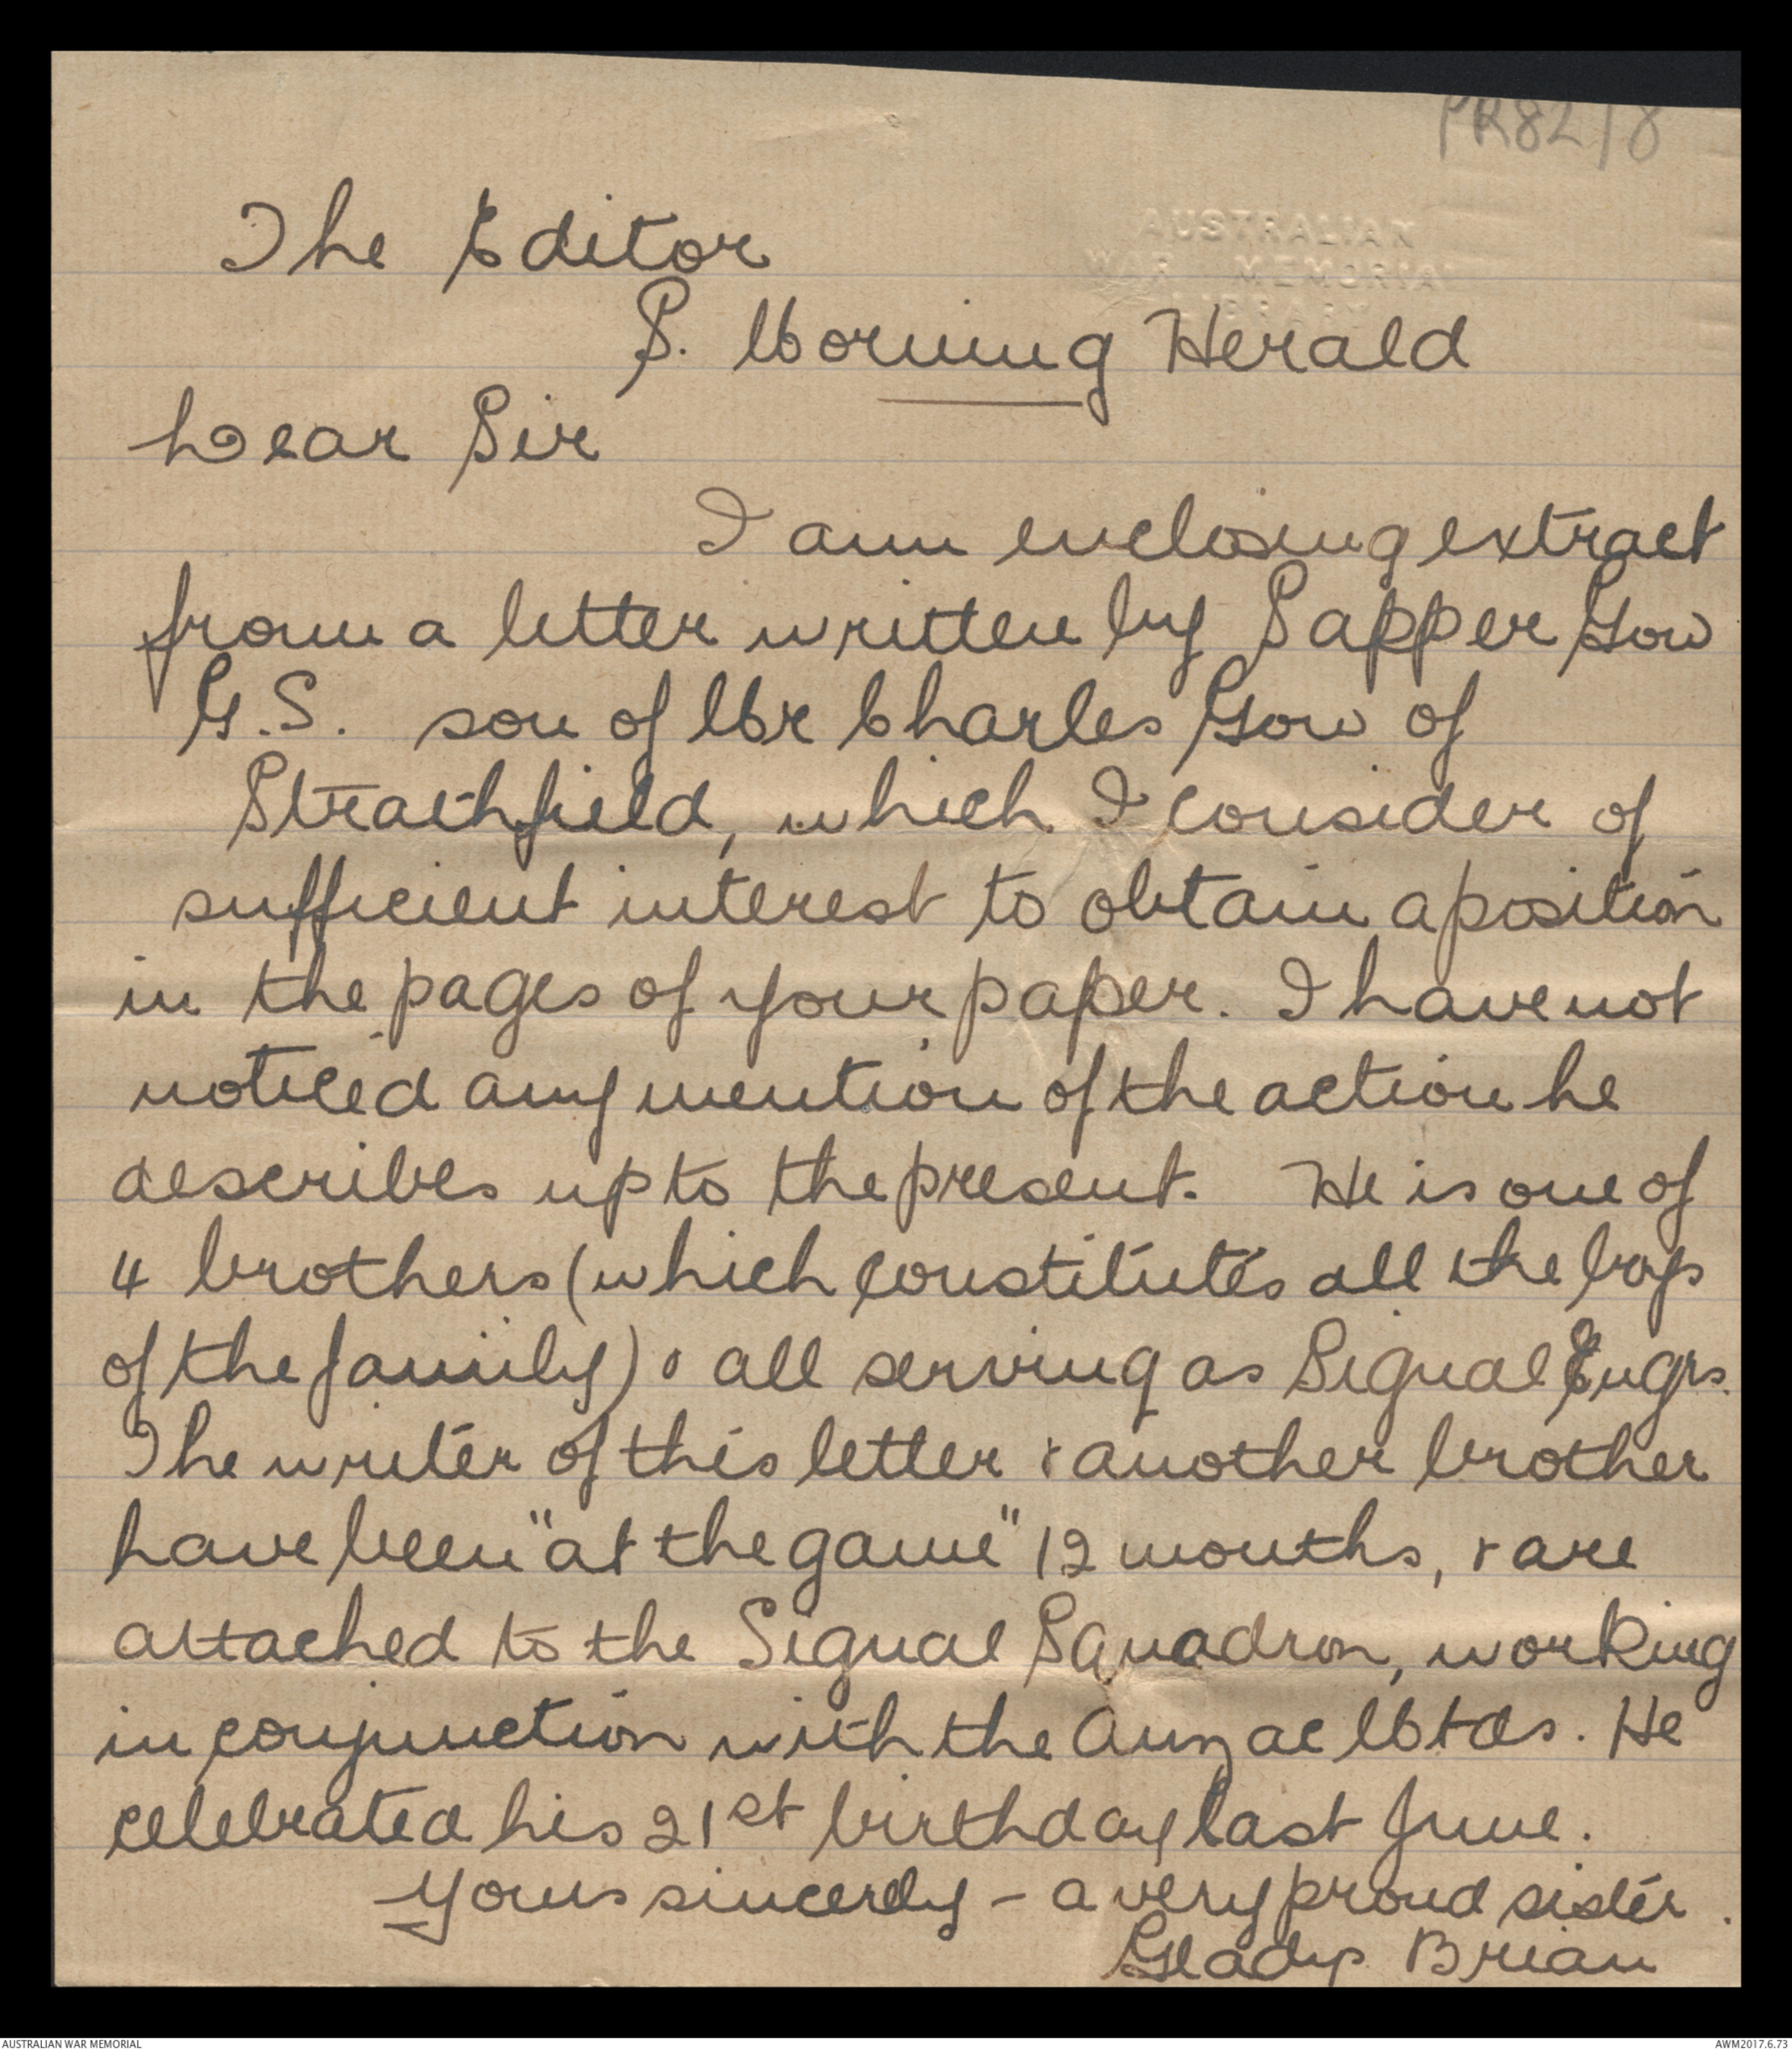 PR82/8
AUSTRALIAN
WAR MEMORIAL
LIBRARY
The Editor
S. Morning Herald
Dear Sir
I am enclosing extract
from a letter written by Sapper Gow
G.S. son of Mr Charles Gow of
Strathfield, which I consider of
sufficient interest to obtain a position
in the pages of your paper. I have not
noticed any mention of the action he
describes up to the present. He is one of
4 brothers (which constitutes all the boys
of the family) & all serving as Signal Engrs.
The writer of this letter & another brother
have been "at the game" 12 months, & are
attached to the Signal Squadron, working
in conjunction with the Anzac Mtds. He
celebrated his 21st birthday last June.
Yours sincerely - a very proud sister.
Gladys Brian
AUSTRALIAN WAR MEMORIAL
AWM2017.6.73